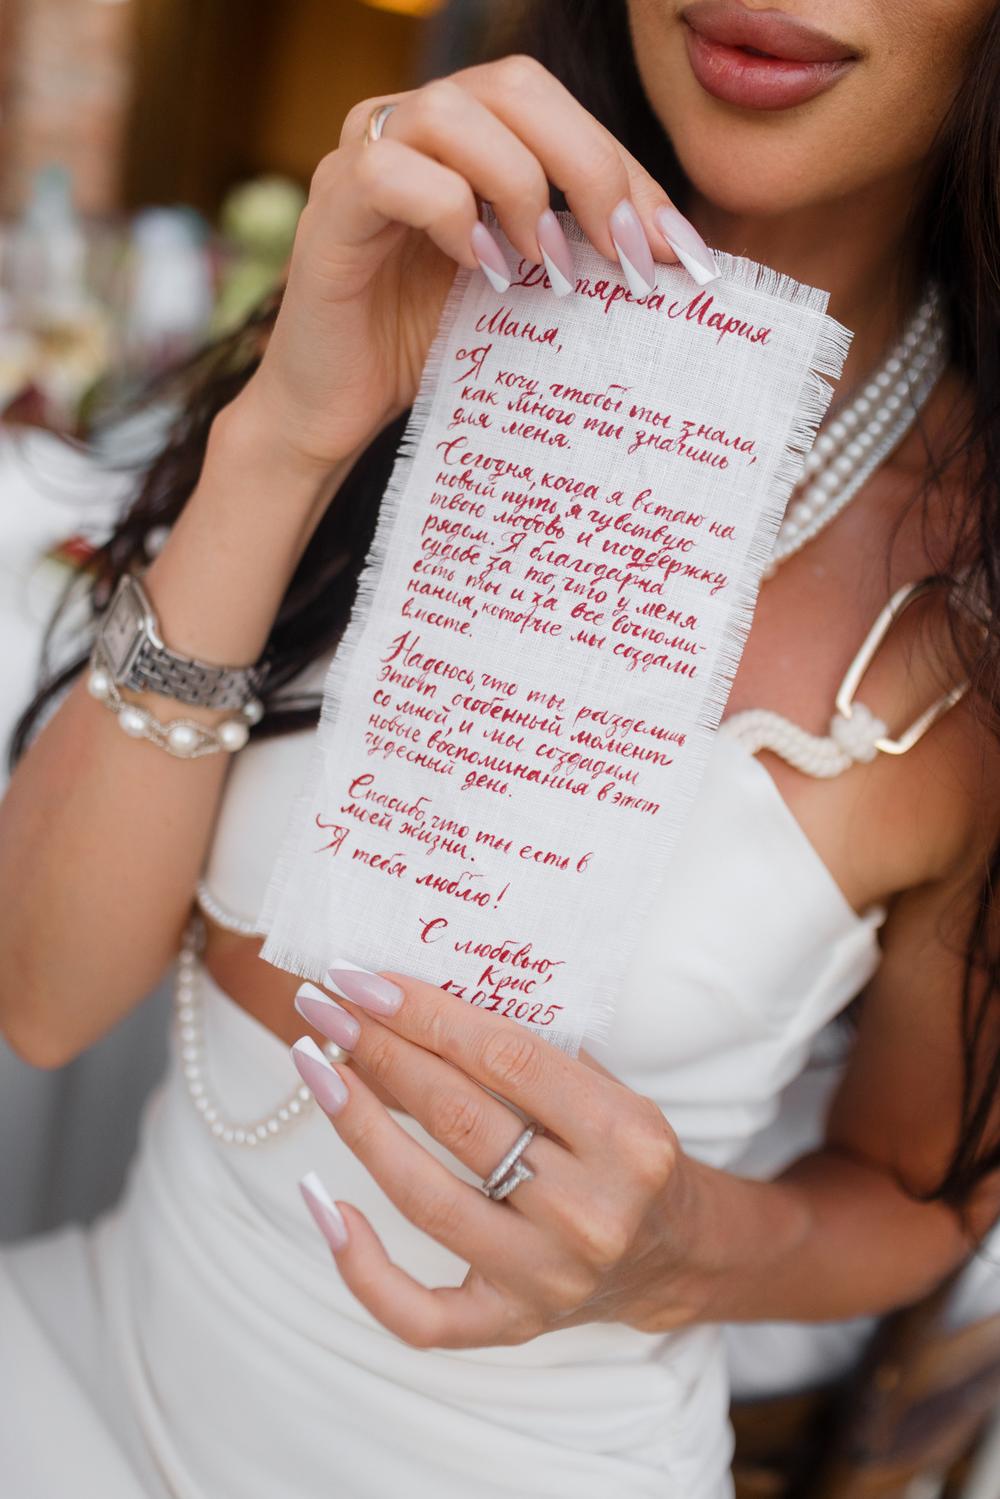 Мария
Маня,
Я хочу, чтобы ты знала,
как много ты значишь
для меня.
Сегодня, когда я встаю на
новый путь, я чувствую
твою любовь и поддержку
рядом. Я благодарна
судьбе за то, что у меня
есть ты и за все воспоми-
нания, которые мы создали
вместе.
Надеюсь, что ты разделишь
этот особенный момент
со мной, и мы создадим
новые воспоминания в этот
чудесный день.
Спасибо, что ты есть в
моей жизни.
Я тебя люблю!
С любовью,
Крис
17.07.2025